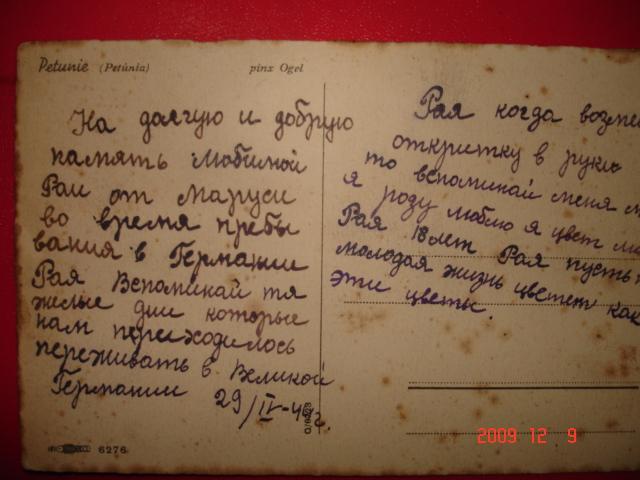 Petunie (Petúnia)
pinx Ogel
На долгую и добрую
память Любимой
Раи от Маруси
во время пребы
вания в Германии
Рая Вспоминай тя
желые дни которые
нам переходилось
переживать в Великой
Германии 29/IV-44г.
6276
Рая когда возме
откритку в руки
то вспоминай меня
я роду люблю я цвет
Рая 18 лет Рая пусть
молодая жизнь цветет как
эти цветы.
2009 12 9